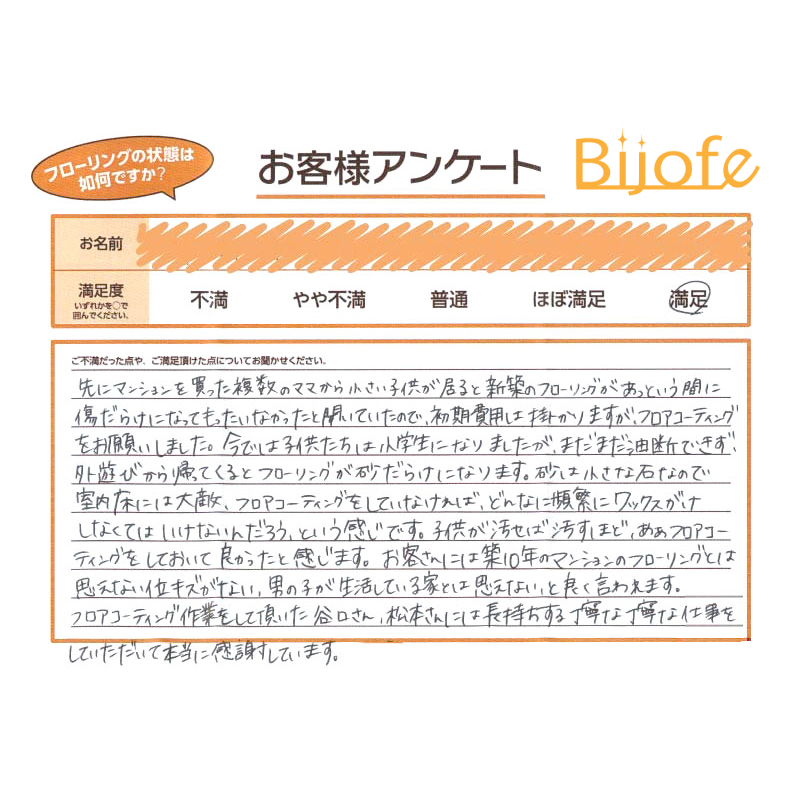 フローリングの状態は
如何ですか?
お客様アンケート
Bijofe
お名前
満足度
いずれかを○で
囲んでください。
不満 やや不満 普通 ほぼ満足 満足
ご不満だった点や、ご満足頂けた点についてお聞かせください。
先にマンションを買った複数のママから小さい子供が居ると新築のフローリングがあっという間に
傷だらけになってもったいなかったと聞いていたので、初期費用は掛かりますが、フロアコーティング
をお願いしました。今では子供たちは小学生になりましたが、まだまだ油断できず、
外遊びから帰ってくるとフローリングが砂だらけになります。砂は小さな石なので
室内床には大敵、フロアコーティングをしていなければ、どんなに頻繁にワックスがけ
しなくてはいけないんだろう、という感じです。子供が汚せば汚すほど、ああフロアコー
ティングをしておいて良かったと感じます。お客さんには築10年のマンションのフローリングとは
思えない位キズがない、男の子が生活している家とは思えない、と良く言われます。
フロアコーティング作業をして頂いた谷口さん、松本さんには長持ちする丁寧な丁寧な仕事を
していただいて本当に感謝しています。